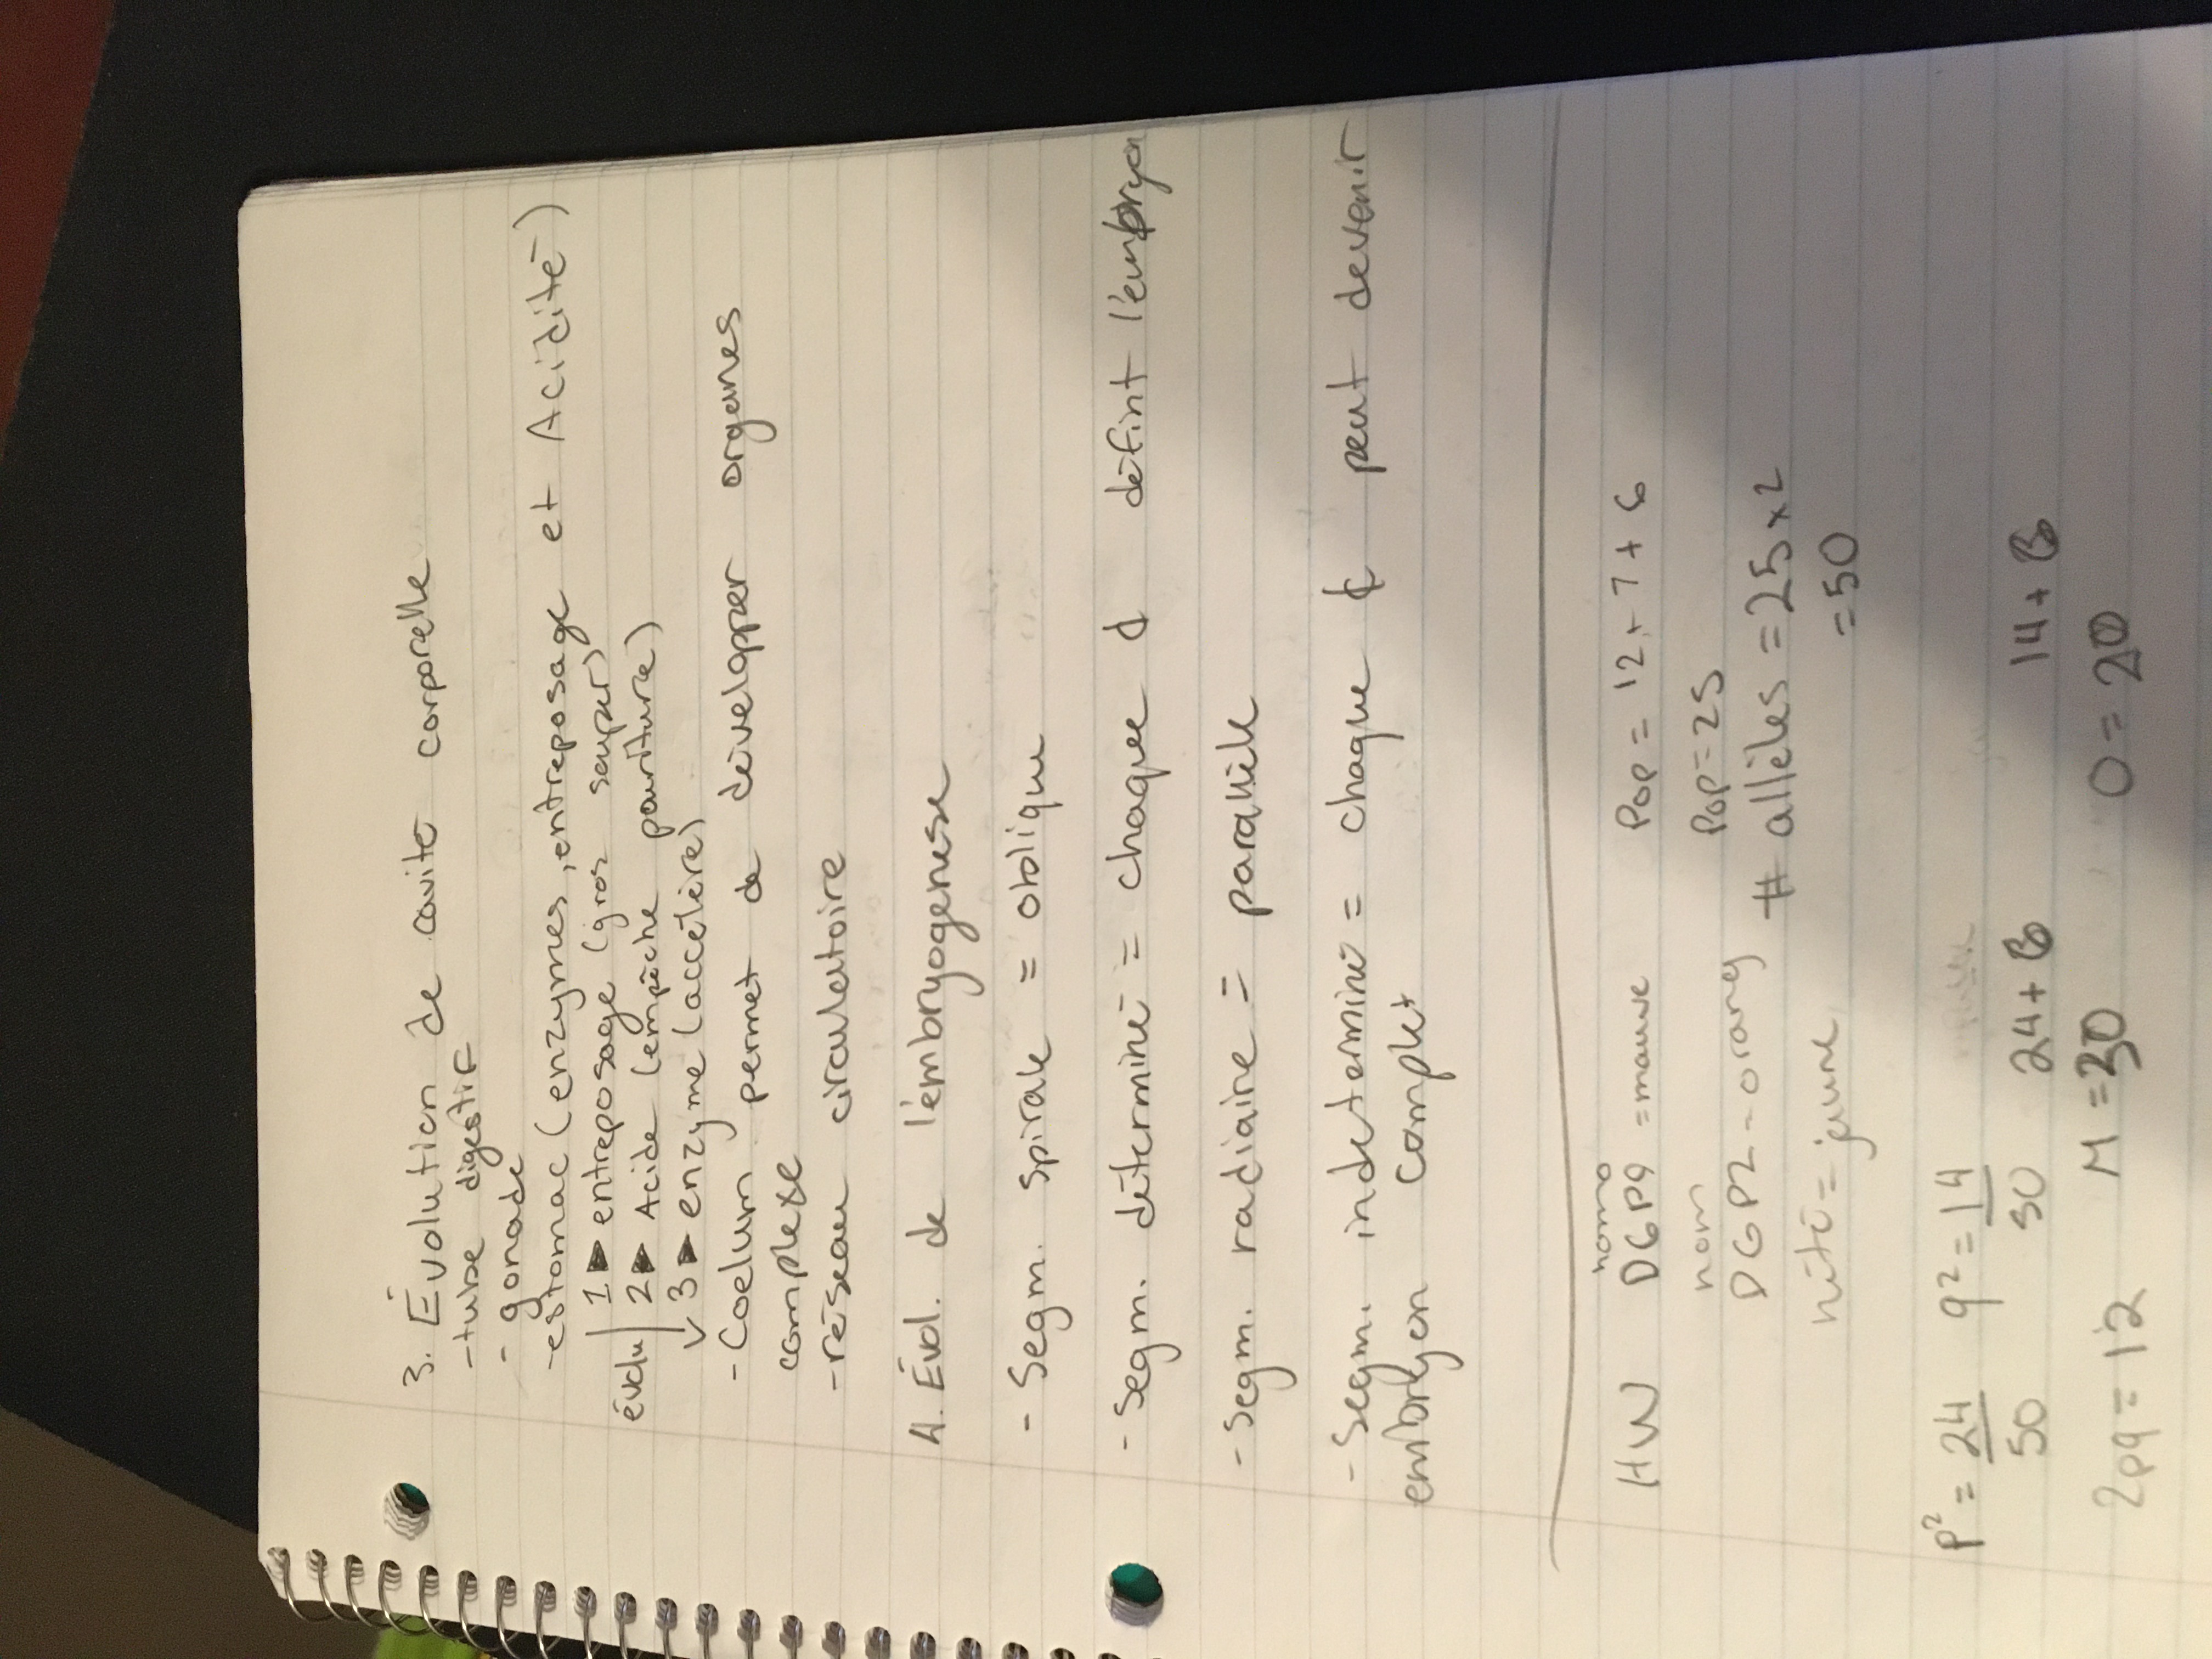 3. Évolution de cavité corporelle
-tube digestif
- gonade
-estomac (enzymes, entreposage et Acidité)
1▶ entreposage (gros souper)
évolu 2▶ Acide (empêche pouriture)
3▶ enzyme (accélère)
- Coelum permet de développer organes
complexe
-réseau circulatoire
4. Évol. de l'embryogenèse
- Segm. spirale = oblique
- Segm. déterminé = chaque ¢ définit l'embryon
- Segm. radiaire = parallèle
- Segm. indeterminé = chaque ¢ peut devenir
embryon complet
homo
HW DGPG =mauve Pop = 12 + 7 + 6
hom
Pop=25
DGP2 - orang # allèles = 25 x 2
hété = jaune =50
p² = 24 q² = 14
50 50 24 + 6 14 + 6
2pq = 12 M = 30 O = 20